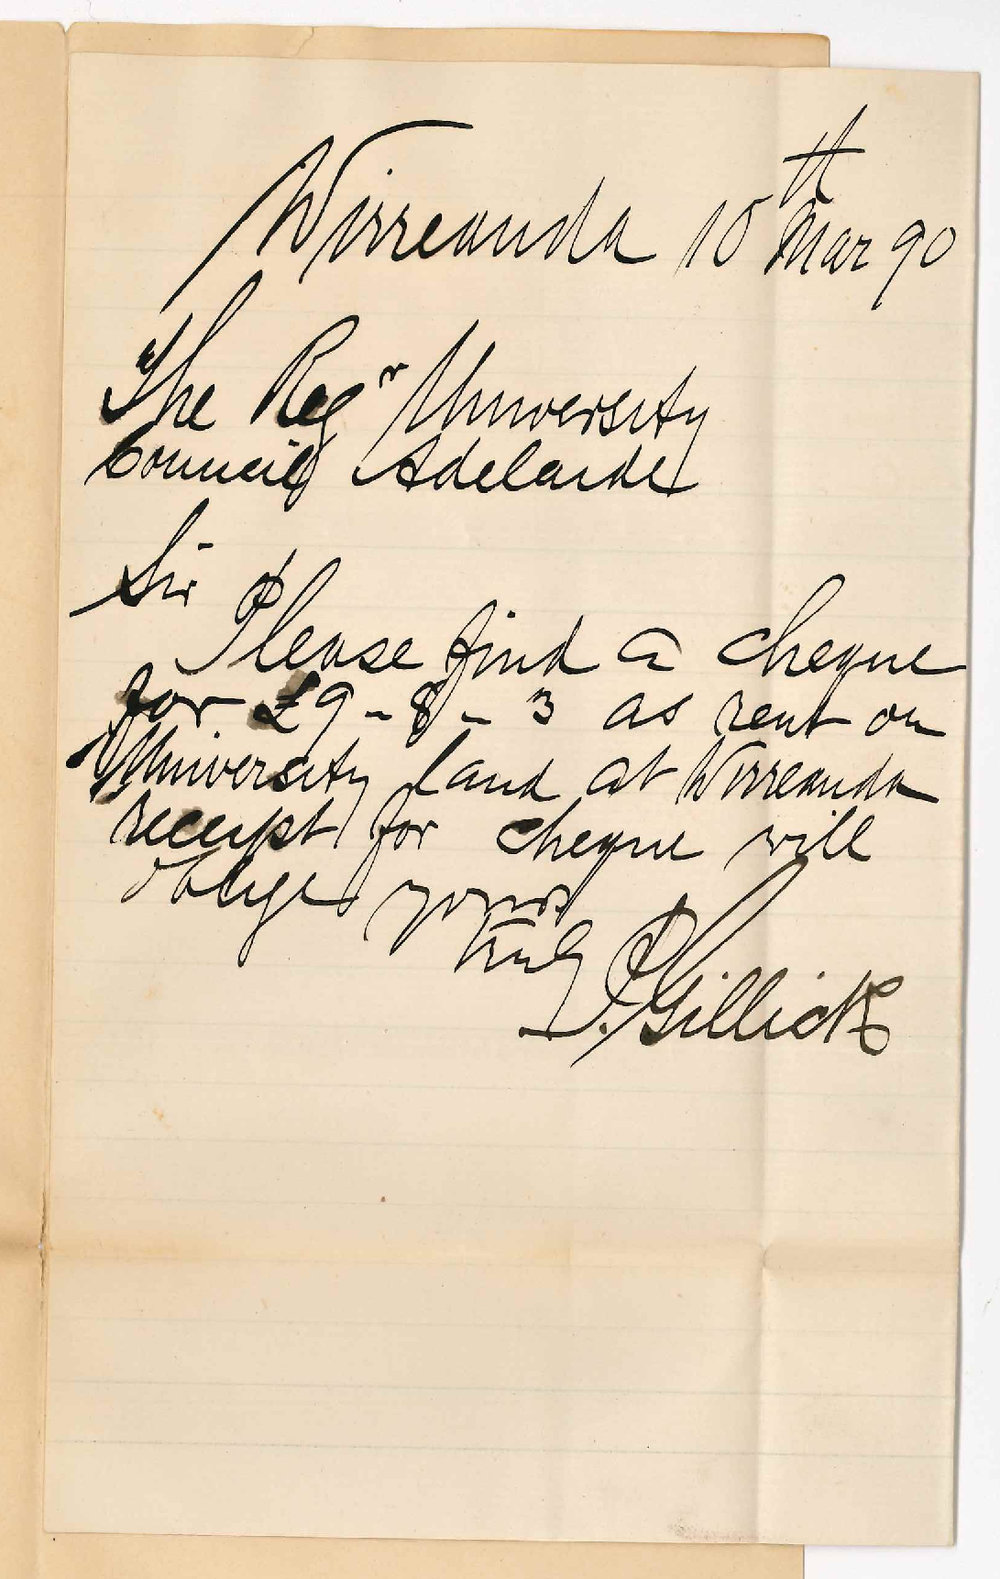 Wirreanda 10th Mar 90
The Regr University
Council Adelaide
Sir
Please find a cheque
for £9-8-3 as rent on
University land at Wirreanda
receipt for cheque will
oblige yours
truly
P. Gillick